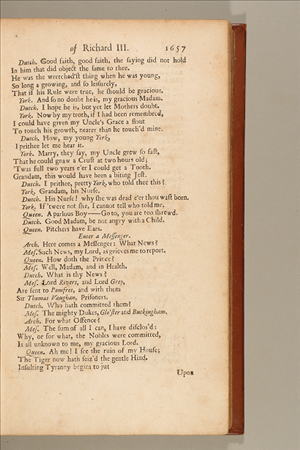 of Richard III. 1657
Dutch. Good faith, good faith, the saying did not hold
In him that did object the same to thee.
He was the wretched'st thing when he was young,
So long a growing, and so leisurely,
That if his Rule were true, he should be gracious.
York. And so no doubt he is, my gracious Madam.
Dutch. I hope he is, but yet let Mothers doubt.
York. Now by my troth, if I had been remembred,
I could have given my Uncle's Grace a flout
To touch his growth, nearer than he touch'd mine.
Dutch. How, my young York,
I prithee let me hear it.
York. Marry, they say, my Uncle grew so fast,
That he could gnaw a Crust at two hours old;
'Twas full two years e'er I could get a Tooth.
Grandam, this would have been a biting Jest.
Dutch. I prithee, pretty York, who told thee this?
York. Grandam, his Nurse.
Dutch. His Nurse! why she was dead e'er thou wast born.
York. If 'twere not she, I cannot tell who told me.
Queen. A parlous Boy——Go to, you are too shrewd.
Dutch. Good Madam, be not angry with a Child.
Queen. Pitchers have Ears.
Enter a Messenger.
Arch. Here comes a Messenger: What News?
Mes. Such News, my Lord, as grieves me to report.
Queen. How doth the Prince?
Mes. Well, Madam, and in Health.
Dutch. What is thy News?
Mes. Lord Rivers, and Lord Grey,
Are sent to Pomfret, and with them
Sir Thomas Vaughan, Prisoners.
Dutch. Who hath committed them?
Mes. The mighty Dukes, Glo'ster and Buckingham.
Arch. For what Offence?
Mes. The sum of all I can, I have disclos'd:
Why, or for what, the Nobles were committed,
Is all unknown to me, my gracious Lord.
Queen. Ah me! I see the ruin of my House;
The Tiger now hath seiz'd the gentle Hind.
Insulting Tyranny begins to jut
Upon